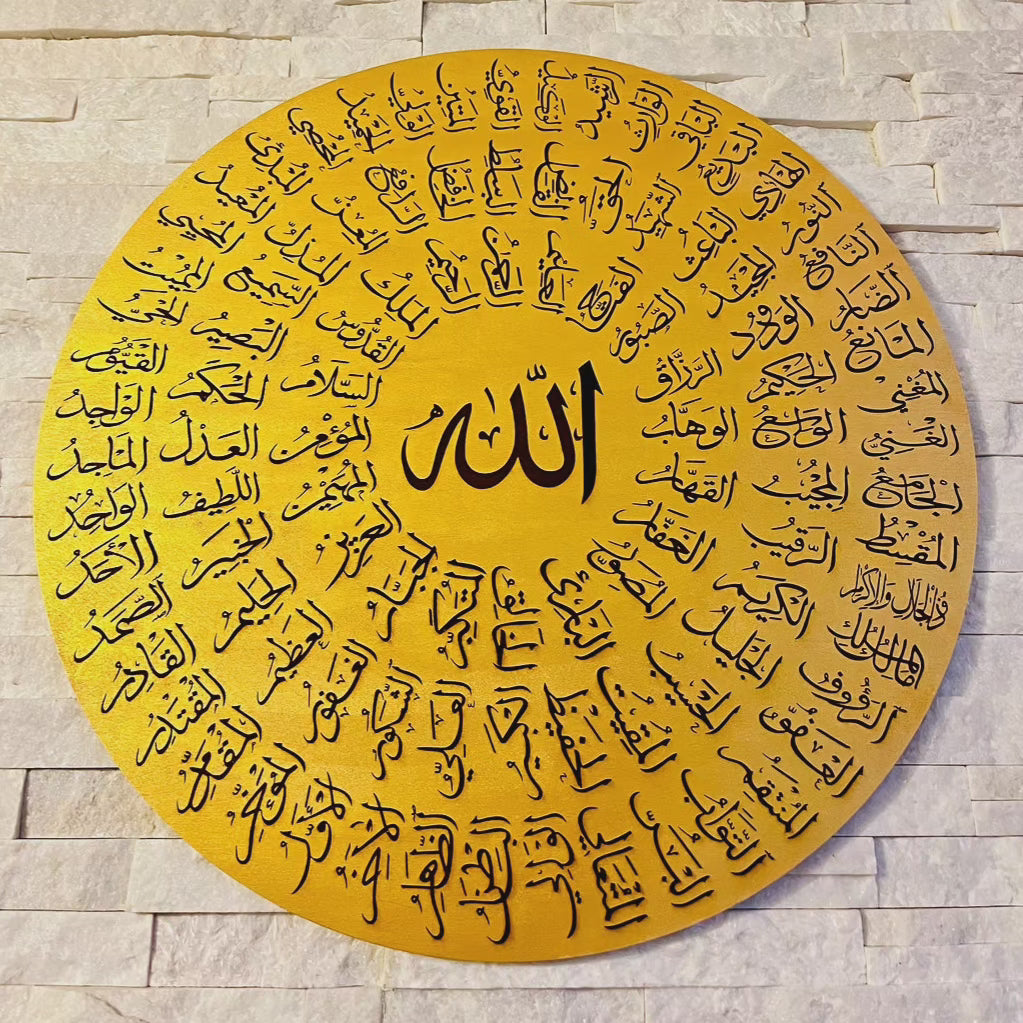 الله
الرَّحْمٰنُ
الرَّحِيمُ
المَلِكُ
القُدُّوسُ
السَّلَامُ
المُؤْمِنُ
المُهَيْمِنُ
العَزِيزُ
الجَبَّارُ
المُتَكَبِّرُ
الخَالِقُ
البَارِئُ
المُصَوِّرُ
الغَفَّارُ
القَهَّارُ
الوَهَّابُ
الرَّزَّاقُ
الصَّبُورُ
الفَتَّاحُ
العَلِيمُ
القَابِضُ
البَاسِطُ
الخَافِضُ
الرَّافِعُ
المُعِزُّ
المُذِلُّ
السَّمِيعُ
البَصِيرُ
الحَكَمُ
العَدْلُ
اللَّطِيفُ
الخَبِيرُ
الحَلِيمُ
العَظِيمُ
الغَفُورُ
الشَّكُورُ
العَلِيُّ
الكَبِيرُ
الحَفِيظُ
المُقِيتُ
الحَسِيبُ
الجَلِيلُ
الكَرِيمُ
الرَّقِيبُ
المُجِيبُ
الوَاسِعُ
الحَكِيمُ
الوَدُودُ
المَجِيدُ
البَاعِثُ
الشَّهِيدُ
الحَقُّ
الوَكِيلُ
القَوِيُّ
المَتِينُ
الوَلِيُّ
الحَمِيدُ
المُحْصِي
المُبْدِئُ
المُعِيدُ
المُحْيِي
المُمِيتُ
الحَيُّ
القَيُّومُ
الوَاجِدُ
المَاجِدُ
الوَاحِدُ
الأَحَدُ
الصَّمَدُ
القَادِرُ
المُقْتَدِرُ
المُقَدِّمُ
المُؤَخِّرُ
الأَوَّلُ
الآخِرُ
الظَّاهِرُ
البَاطِنُ
الوَالِي
المُتَعَالِي
البَرُّ
التَّوَّابُ
المُنْتَقِمُ
العَفُوُّ
الرَّؤُوفُ
مَالِكُ المُلْكِ
ذُو الجَلَالِ وَالإِكْرَامِ
المُقْسِطُ
الجَامِعُ
الغَنِيُّ
المُغْنِي
المَانِعُ
الضَّارُّ
النَّافِعُ
النُّورُ
الهَادِي
البَدِيعُ
البَاقِي
الوَارِثُ
الرَّشِيدُ